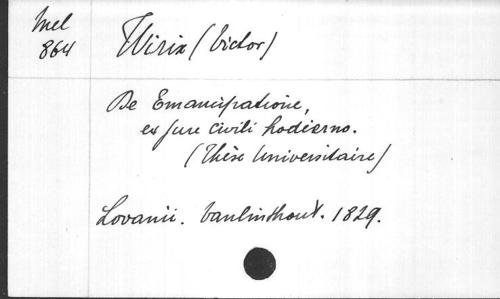 Mel
864
Wirix (Victor)
De Emancipatione,
ex jure civili hodierno.
(Thèse Universitaire)
Lovanii. Vanlinthout. 1829.